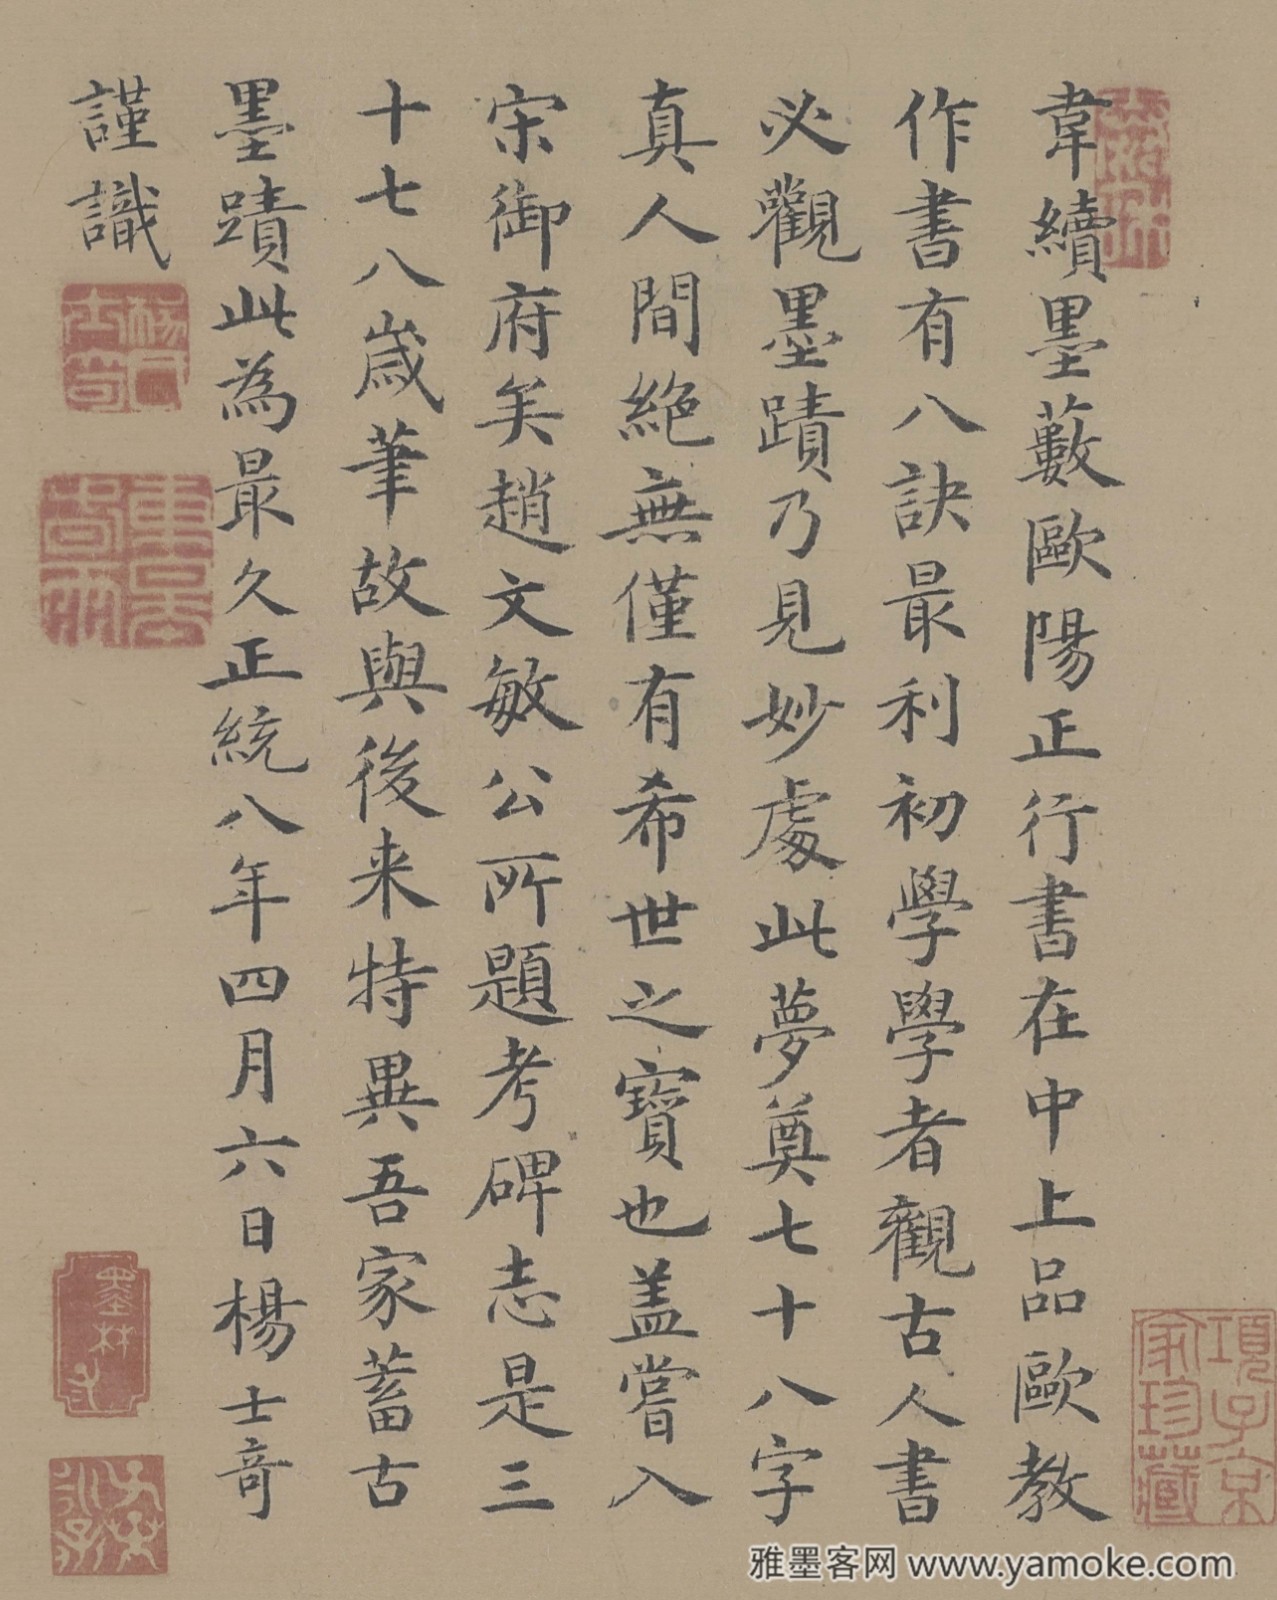 韋續墨藪歐陽正行書在中上品歐教
作書有八訣最利初學學者觀古人書
必觀墨蹟乃見妙處此夢奠七十八字
真人間絶無僅有希世之寶也盖嘗入
宋御府矣趙文敏公所題考碑志是三
十七八歲筆故與後来特異吾家蓄古
墨蹟此為最久正統八年四月六日楊士竒
謹識
楊氏士竒
項子京家珍藏
雅墨客网 www.yamoke.com